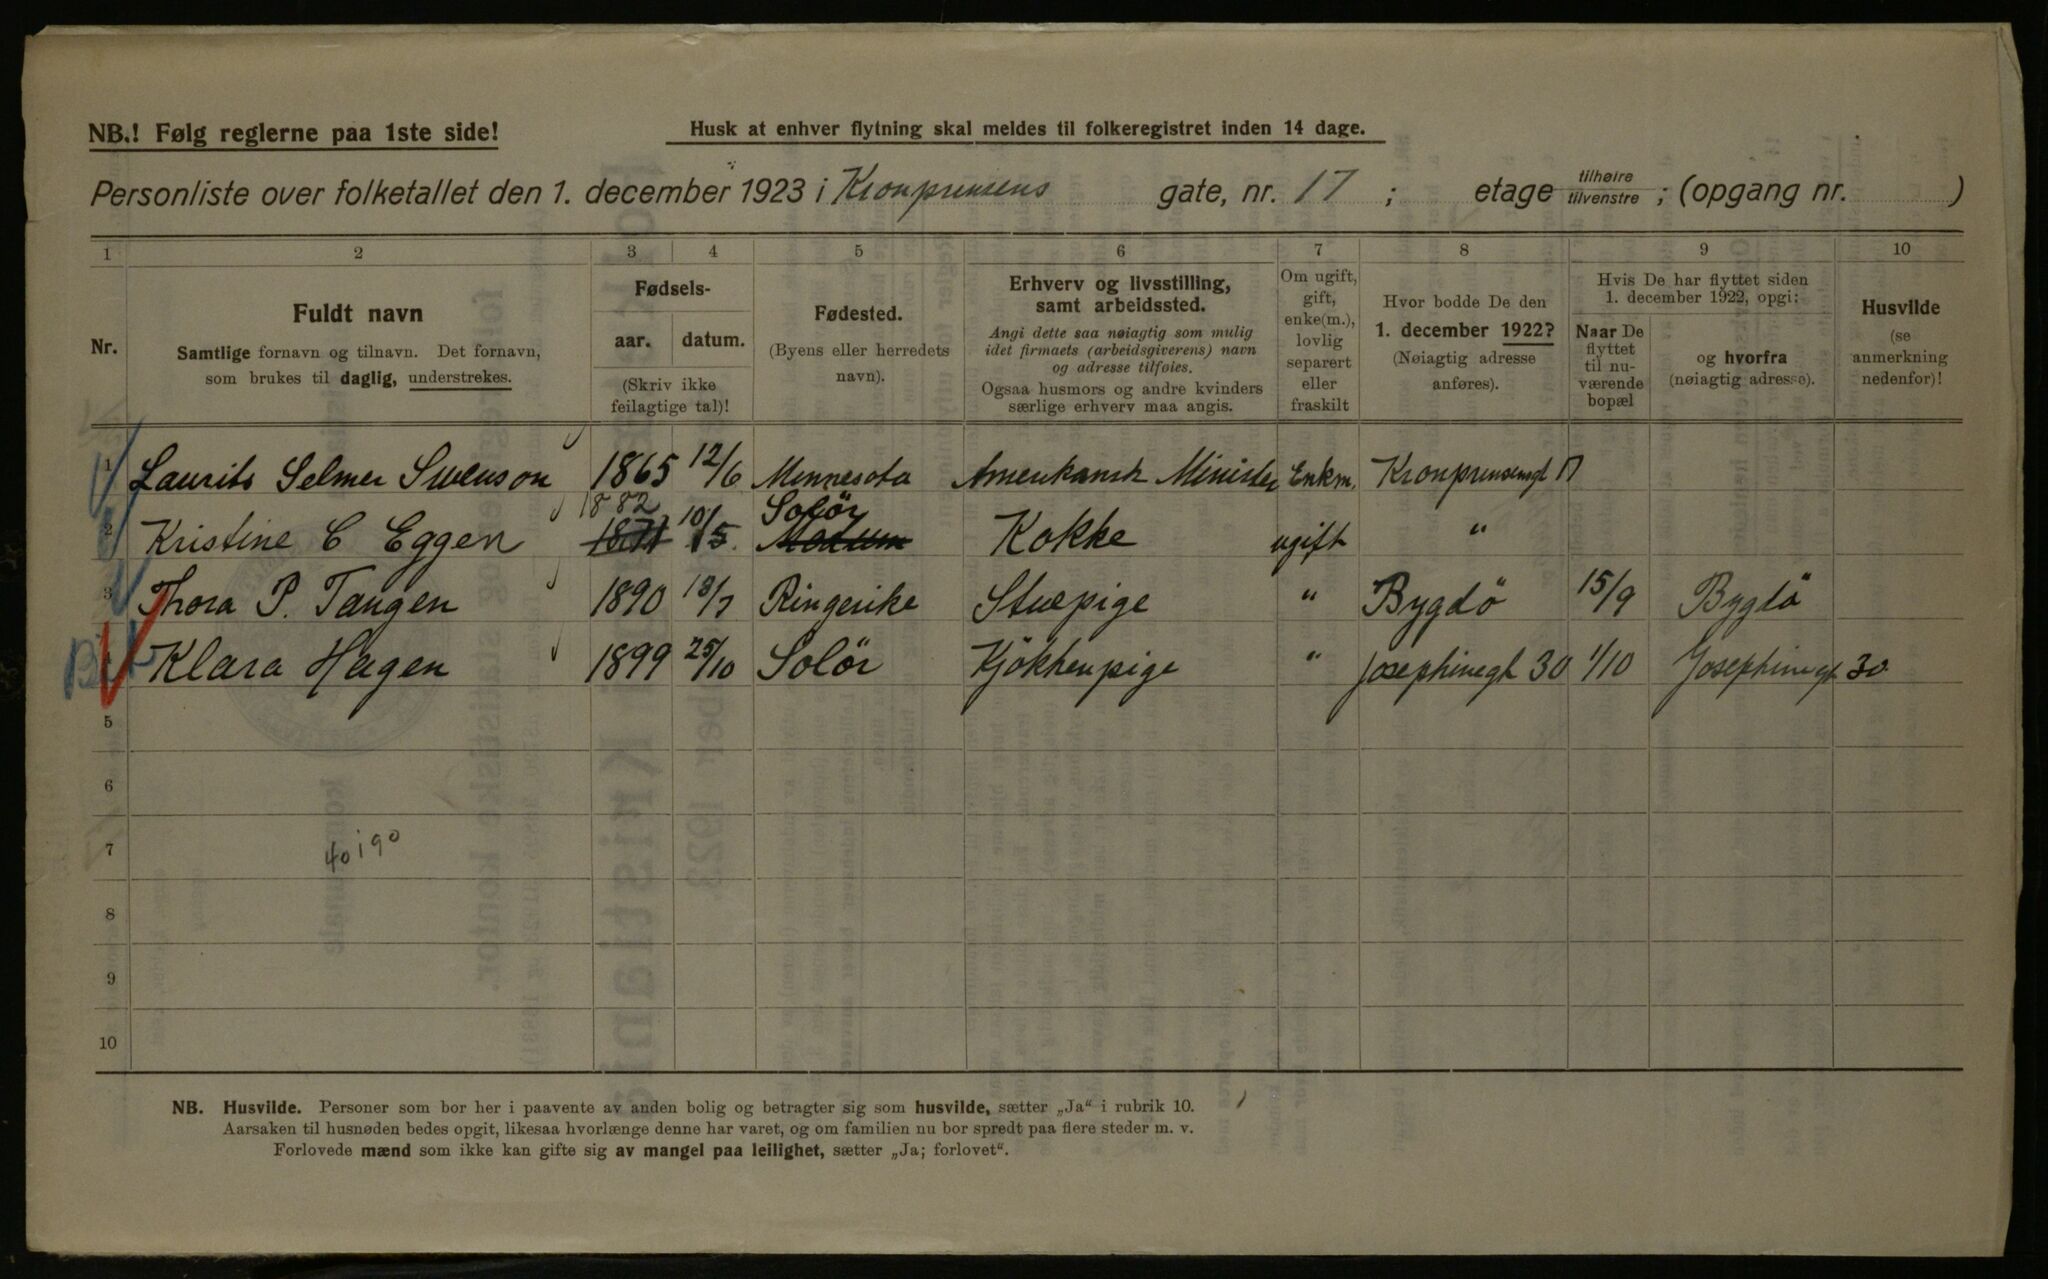 NB.! Følg reglerne paa 1ste side!
Husk at enhver flytning skal meldes til folkeregistret inden 14 dage.
Personliste over folketallet den 1. december 1923 i Kronprinsens gate, nr. 17 ; etage tilhøire tilvenstre ; (opgang nr. )
1 2 3 4 5 6 7 8 9 10
Nr.
Fuldt navn
Samtlige fornavn og tilnavn. Det fornavn,
som brukes til daglig, understrekes.
Fødsels-
aar. datum.
(Skriv ikke
feilagtige tal)!
Fødested.
(Byens eller herredets
navn).
Erhverv og livsstilling,
samt arbeidssted.
Angi dette saa nøiagtig som mulig
idet firmaets (arbeidsgiverens) navn
og adresse tilføies.
Ogsaa husmors og andre kvinders
særlige erhverv maa angis.
Om ugift,
gift,
enke(m.),
lovlig
separert
eller
fraskilt
Hvor bodde De den
1. december 1922?
(Nøiagtig adresse
anføres).
Hvis De har flyttet siden
1. december 1922, opgi:
Naar De
flyttet
til nu-
værende
bopæl
og hvorfra
(nøiagtig adresse).
Husvilde
(se
anmerkning
nedenfor)!
1 Laurits Selmer Swenson 1865 12/6 Minnesota Amerikansk Minister Enkm. Kronprinsensgt 17
1882 Solör
2 Kristine C Eggen 1871 10/5. Modum Kokke ugift "
3 Thora P. Tangen 1890 18/7 Ringerike Stuepige " Bygdö 15/9 Bygdö
4 Klara Hagen 1899 25/10 Solör Kjökkenpige " Josephinegt 30 1/10 Josephinegt 30
5
6
7 40190
8
9
10
NB. Husvilde. Personer som bor her i paavente av anden bolig og betragter sig som husvilde, sætter „Ja“ i rubrik 10.
Aarsaken til husnøden bedes opgit, likesaa hvorlænge denne har varet, og om familien nu bor spredt paa flere steder m. v.
Forlovede mænd som ikke kan gifte sig av mangel paa leilighet, sætter „Ja; forlovet“.